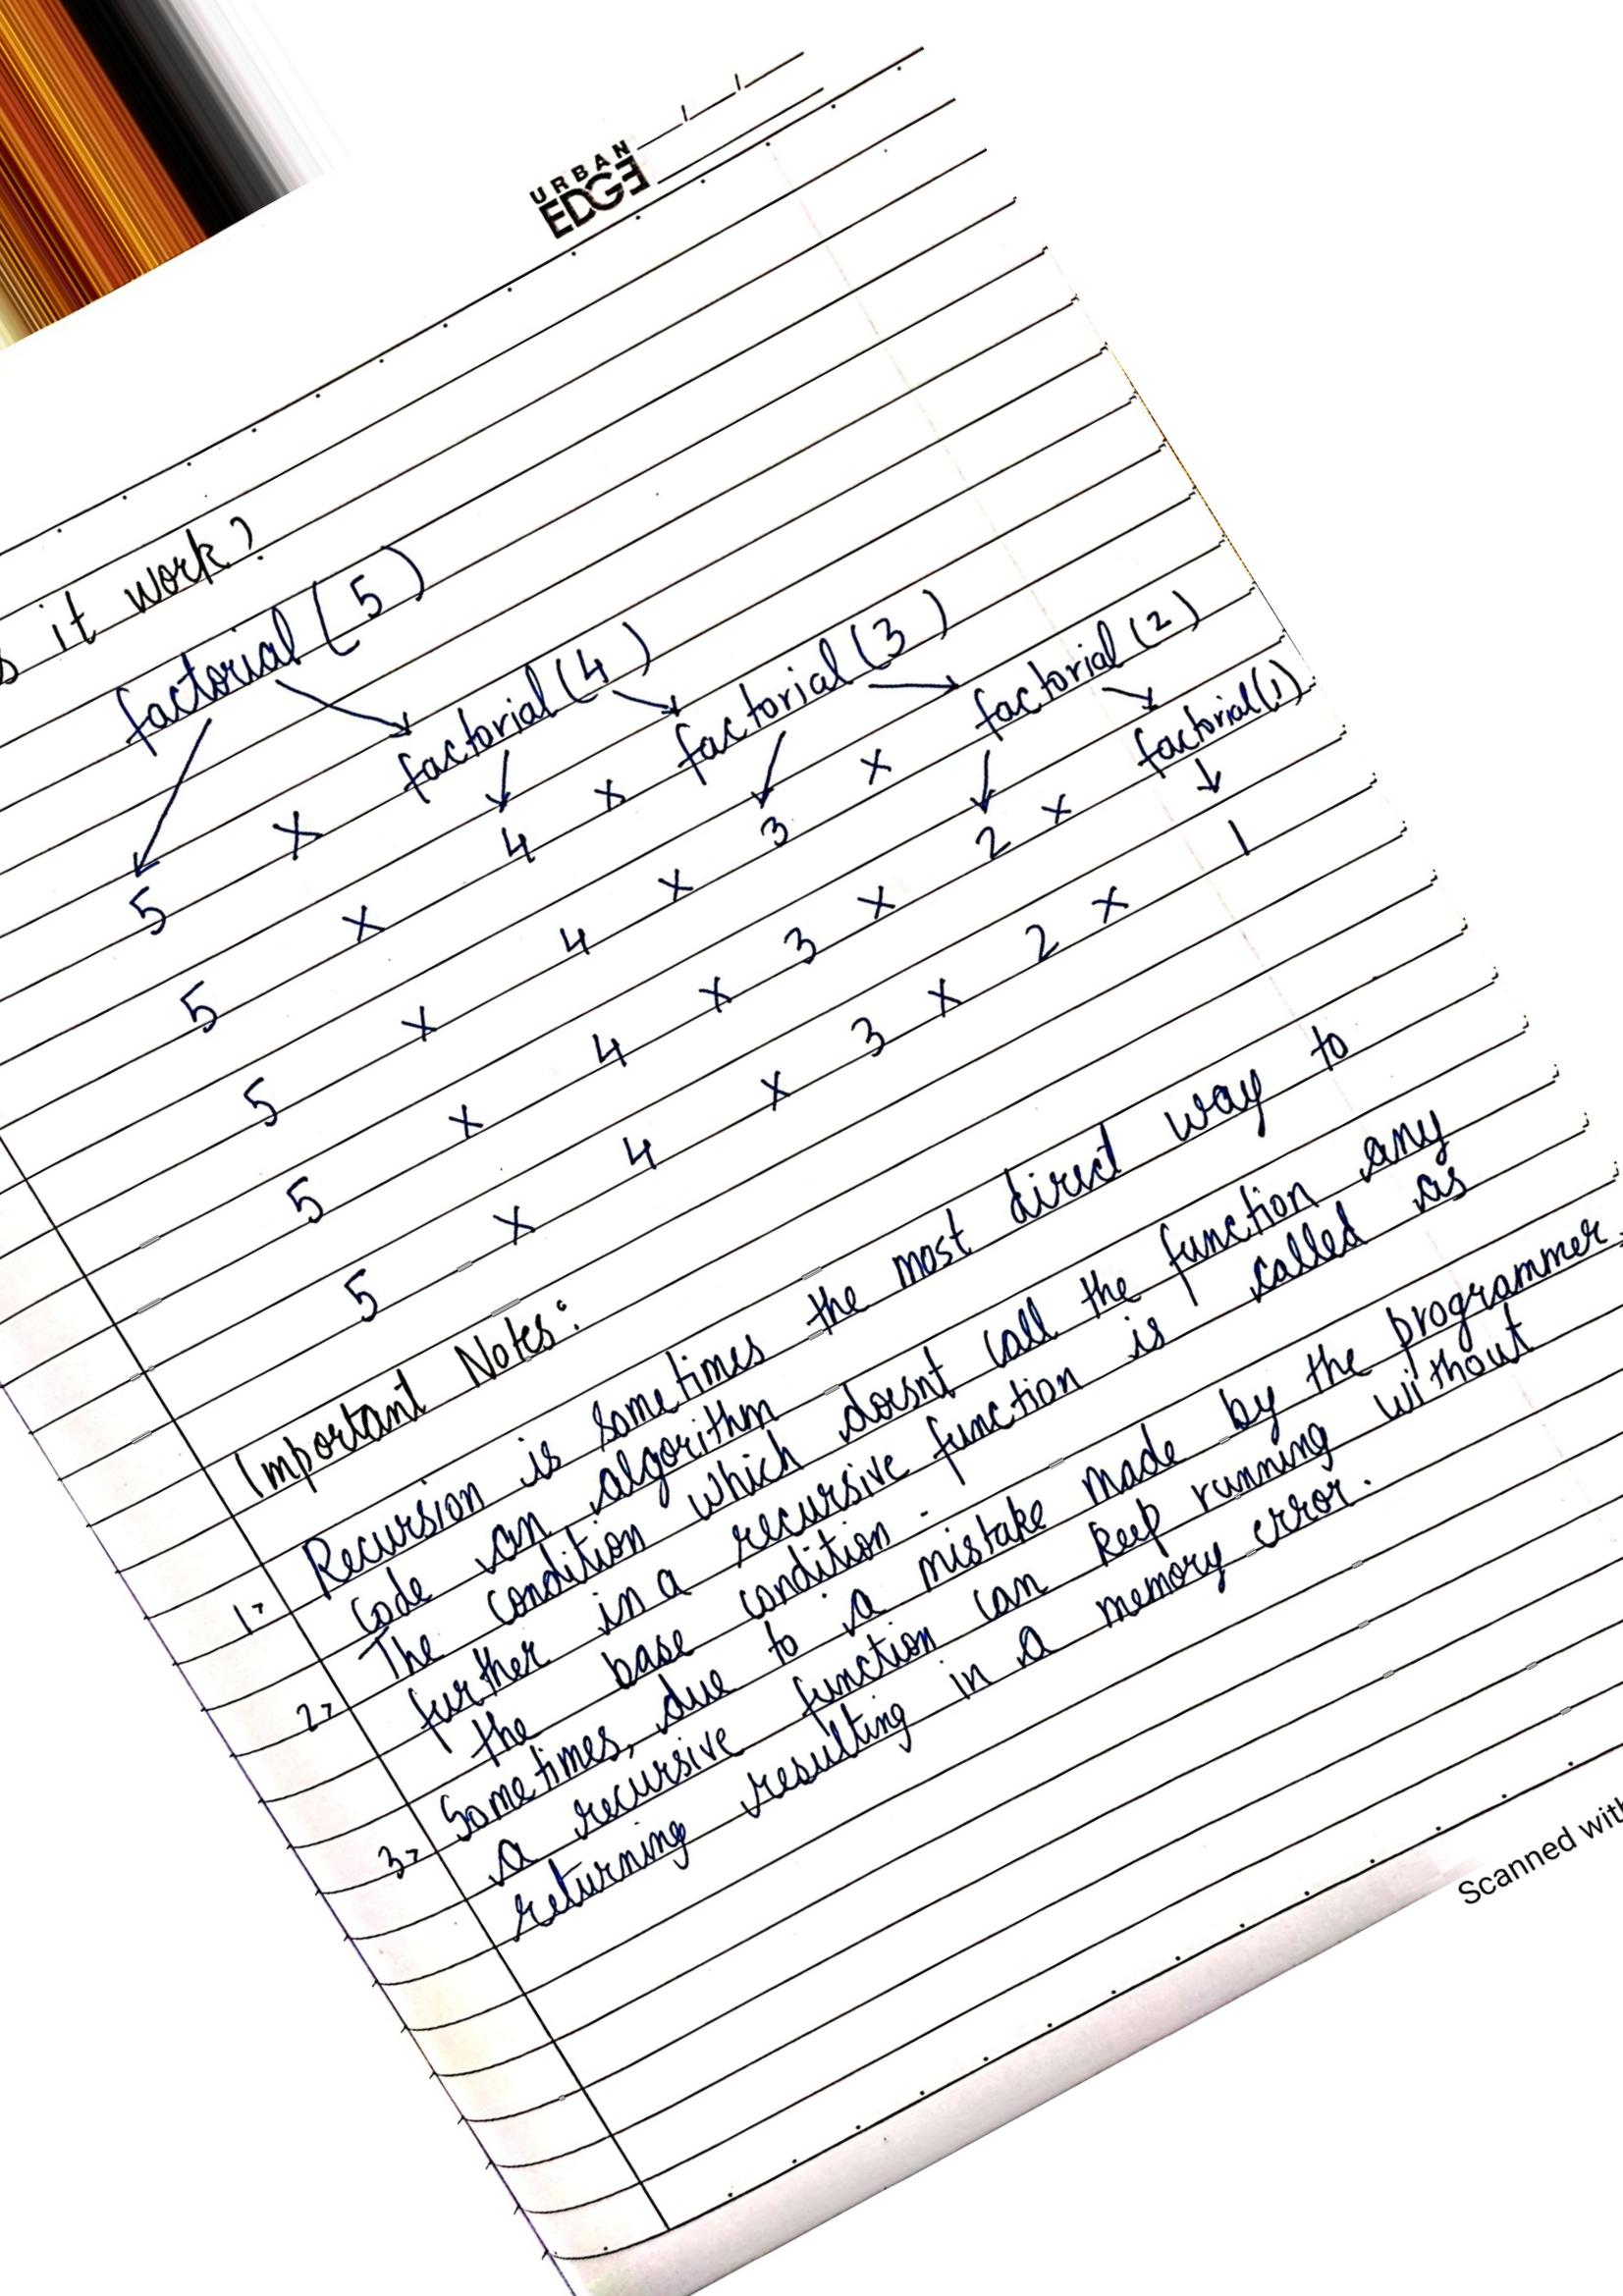 URBAN
EDGE
it work?
factorial (5)
factorial (4) factorial (3) factorial (2)
5 x factorial(1)
5 x 4 x
5 x 4 x 3 x
5 x 4 x 3 x 2 x
5 x 4 x 3 x 2 x 1
Important Notes:
1> Recursion is sometimes the most direct way to
code an algorithm
2> The condition which doesnt call the function any
further in a recursive function is called as
the base condition.
3> Sometimes, due to a mistake made by the programmer,
a recursive function can keep running without
returning resulting in a memory error.
Scanned with